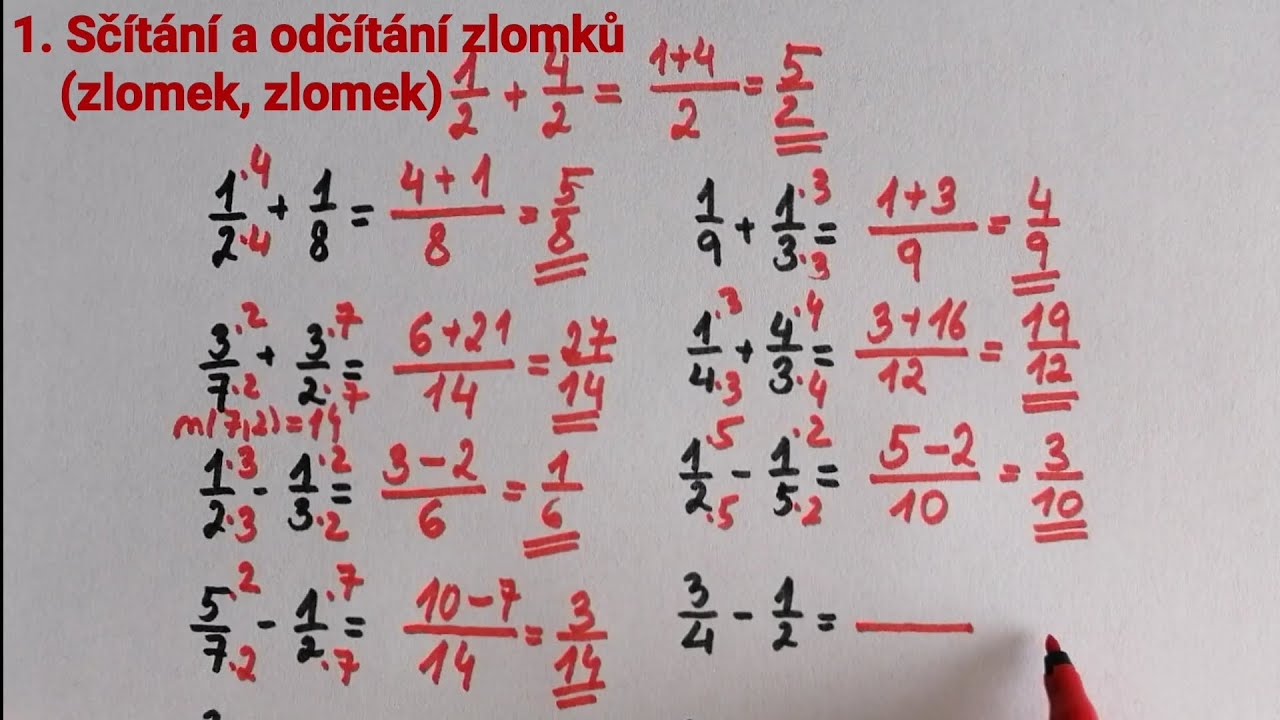 1. Sčítání a odčítání zlomků
(zlomek, zlomek)
1/2 + 4/2 = (1+4)/2 = 5/2
1·4/2·4 + 1/8 = (4+1)/8 = 5/8
1/9 + 1·3/3·3 = (1+3)/9 = 4/9
3·2/7·2 + 3·7/2·7 = (6+21)/14 = 27/14
n(7,2)=14
1·3/4·3 + 4·4/3·4 = (3+16)/12 = 19/12
1·3/2·3 - 1·2/3·2 = (3-2)/6 = 1/6
1·5/2·5 - 1·2/5·2 = (5-2)/10 = 3/10
5·2/7·2 - 1·7/2·7 = (10-7)/14 = 3/14
3/4 - 1/2 =